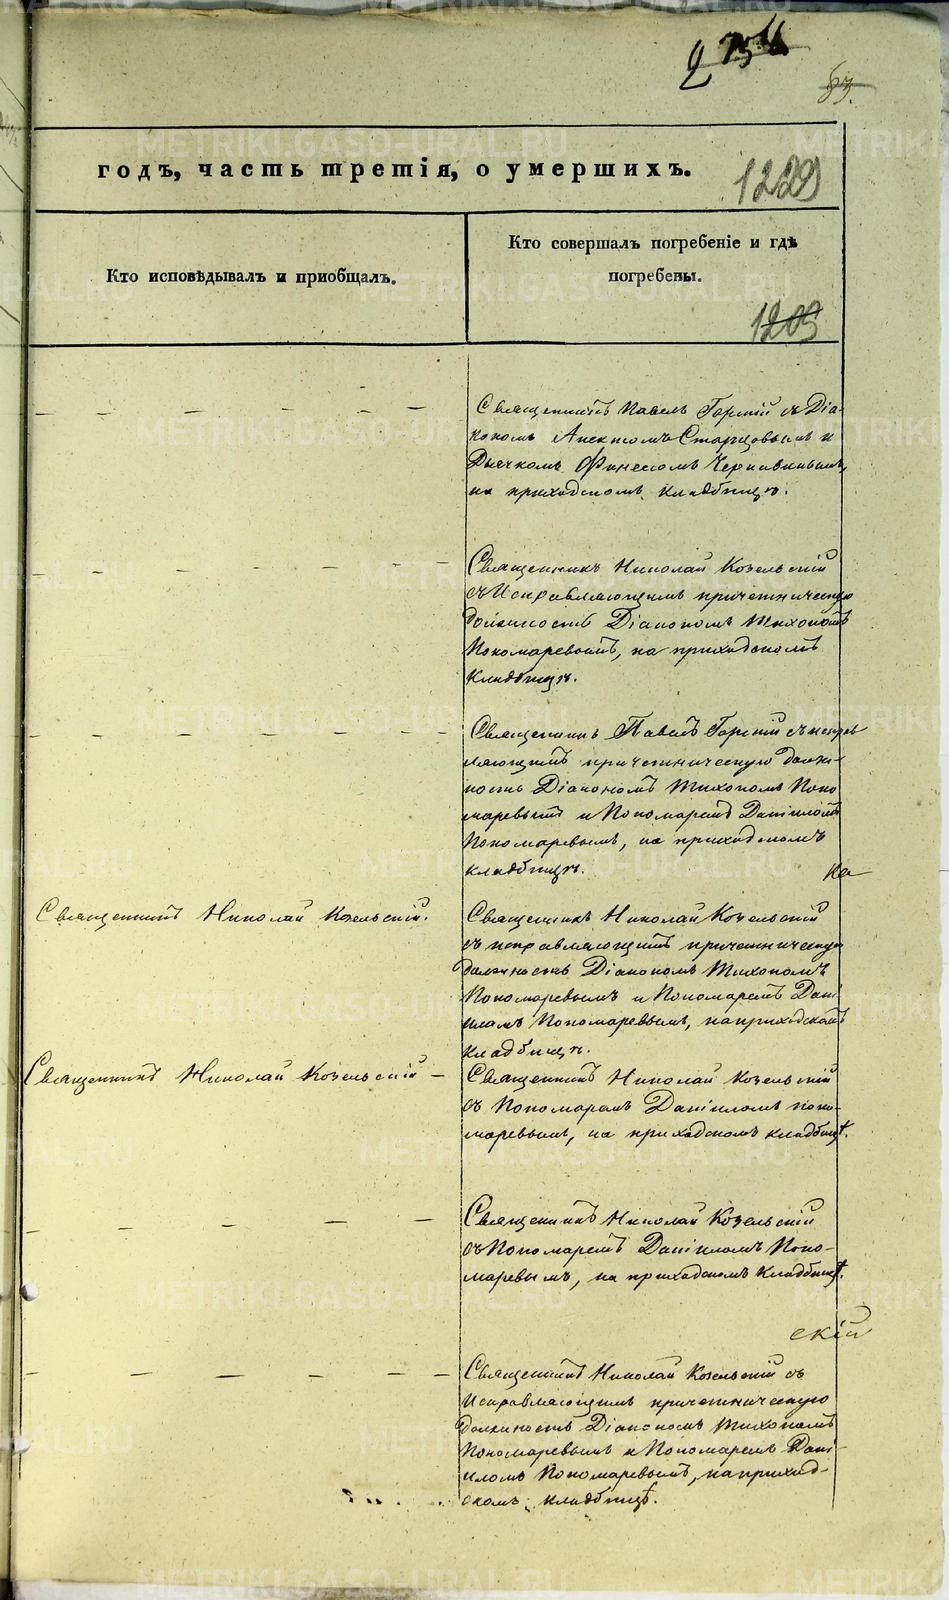 83.
годъ, часть третія, о умершихъ.
1229
Кто исповѣдывалъ и приобщалъ.
Кто совершалъ погребеніе и гдѣ
погребены.
1209
Священникъ Павелъ Горскій съ Діа-
кономъ Старцовымъ и
Дьячкомъ Финеесомъ Чернавинымъ,
на приходскомъ кладбищѣ.
Священникъ Николай Козельскій
съ Исправляющимъ причетническую
должность Діакономъ Тихономъ
Пономаревымъ, на приходскомъ
кладбищѣ.
Священникъ Павелъ Горскій съ исправ
ляющимъ причетническую долж-
ность Діакономъ Тихономъ Поно
маревымъ и Пономаремъ Даніиломъ
Пономаревымъ, на приходскомъ
кладбищѣ.
на
Священникъ Николай Козельскій.
Священникъ Николай Козельскій
съ исправляющимъ причетническую
должность Діакономъ Тихономъ
Пономаревымъ и Пономаремъ Дані
иломъ Пономаревымъ, на приходскомъ
кладбищѣ.
Священникъ Николай Козельскій —
Священникъ Николай Козельскій
съ Пономаремъ Даніиломъ Поно-
маревымъ, на приходскомъ кладбищѣ.
Священникъ Николай Козельскій
съ Пономаремъ Даніиломъ Поно-
маревымъ, на приходскомъ кладбищѣ.
скій
Священникъ Николай Козельскій съ
Исправляющимъ причетническую
должность Діакономъ Тихономъ
Пономаревымъ и Пономаремъ Дані-
иломъ Пономаревымъ, на приход-
скомъ кладбищѣ.
METRIKI.GASO-URAL.RU